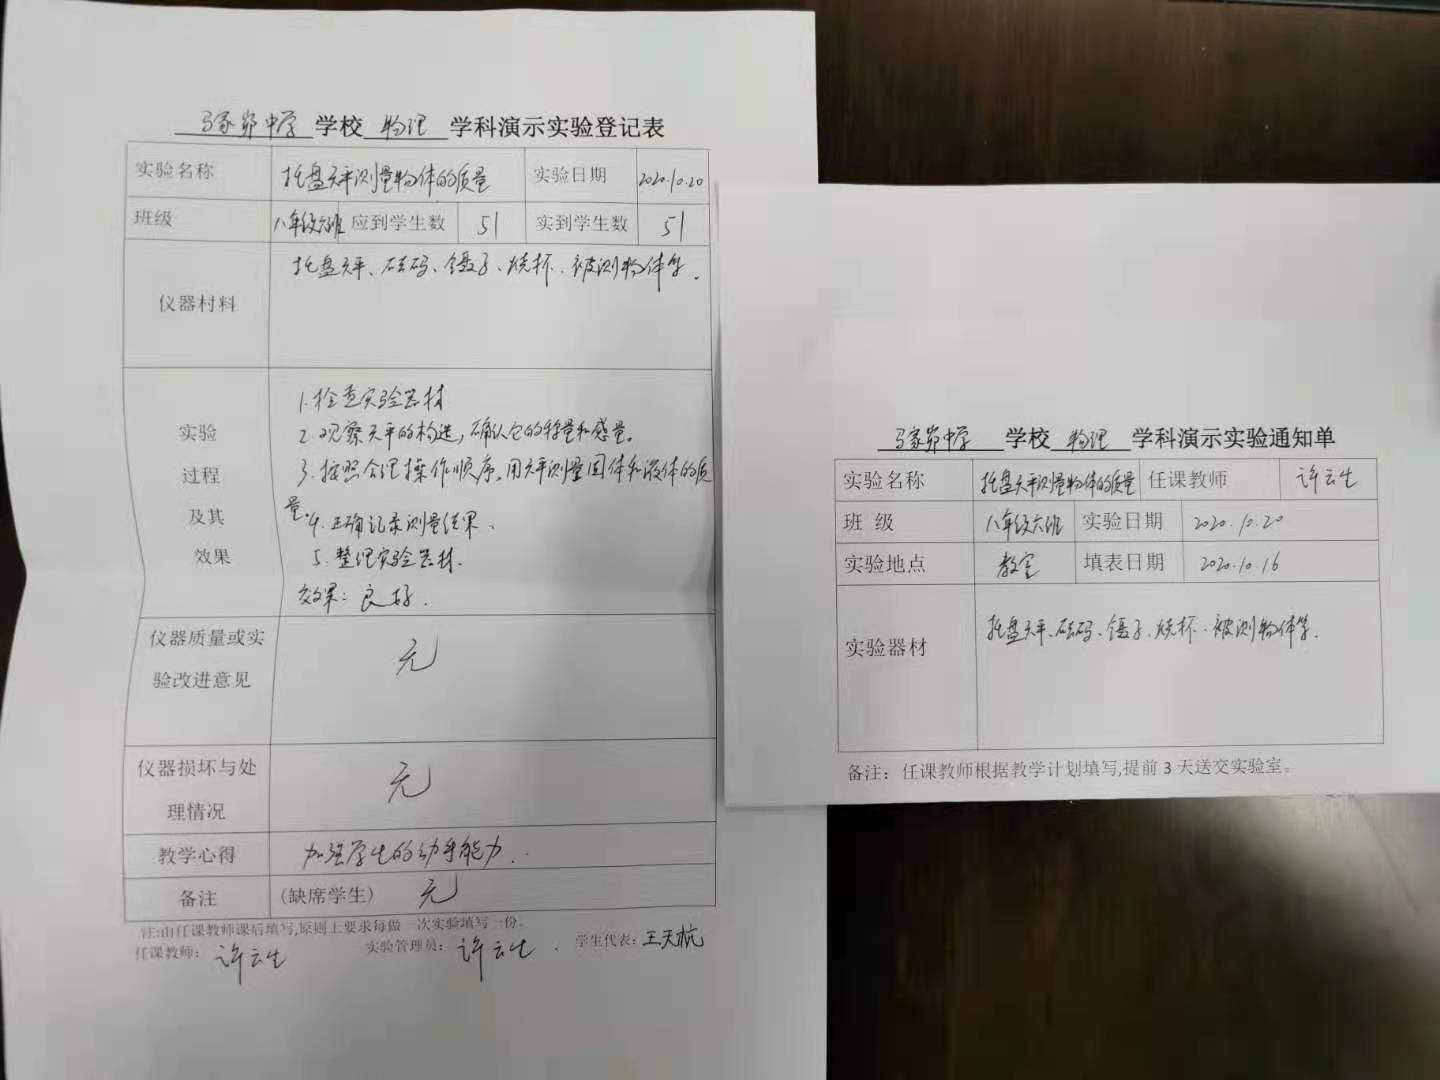 马家峁中学 学校 物理 学科演示实验登记表
实验名称 托盘天平测量物体的质量 实验日期 2020.10.20
班级 八年级六班 应到学生数 51 实到学生数 51
仪器村料 托盘天平、砝码、镊子、烧杯、被测物体等.
实验过程及其效果
1.检查实验器材
2.观察天平的构造,确认它的称量和感量。
3.按照合理操作顺序,用天平测量固体和液体的质
量。
4.正确记录测量结果、
5.整理实验器材.
效果:良好.
仪器质量或实验改进意见 无
仪器损坏与处理情况 无
教学心得 加强学生的动手能力.
备注 (缺席学生) 无
注:由任课教师课后填写,原则上要求每做一次实验填写一份。
任课教师: 许云生 实验管理员: 许云生. 学生代表: 王天杭
马家峁中学 学校 物理 学科演示实验通知单
实验名称 托盘天平测量物体的质量 任课教师 许云生
班 级 八年级六班 实验日期 2020.10.20
实验地点 教室 填表日期 2020.10.16
实验器材 托盘天平、砝码、镊子、烧杯、被测物体等.
备注:任课教师根据教学计划填写,提前3天送交实验室。